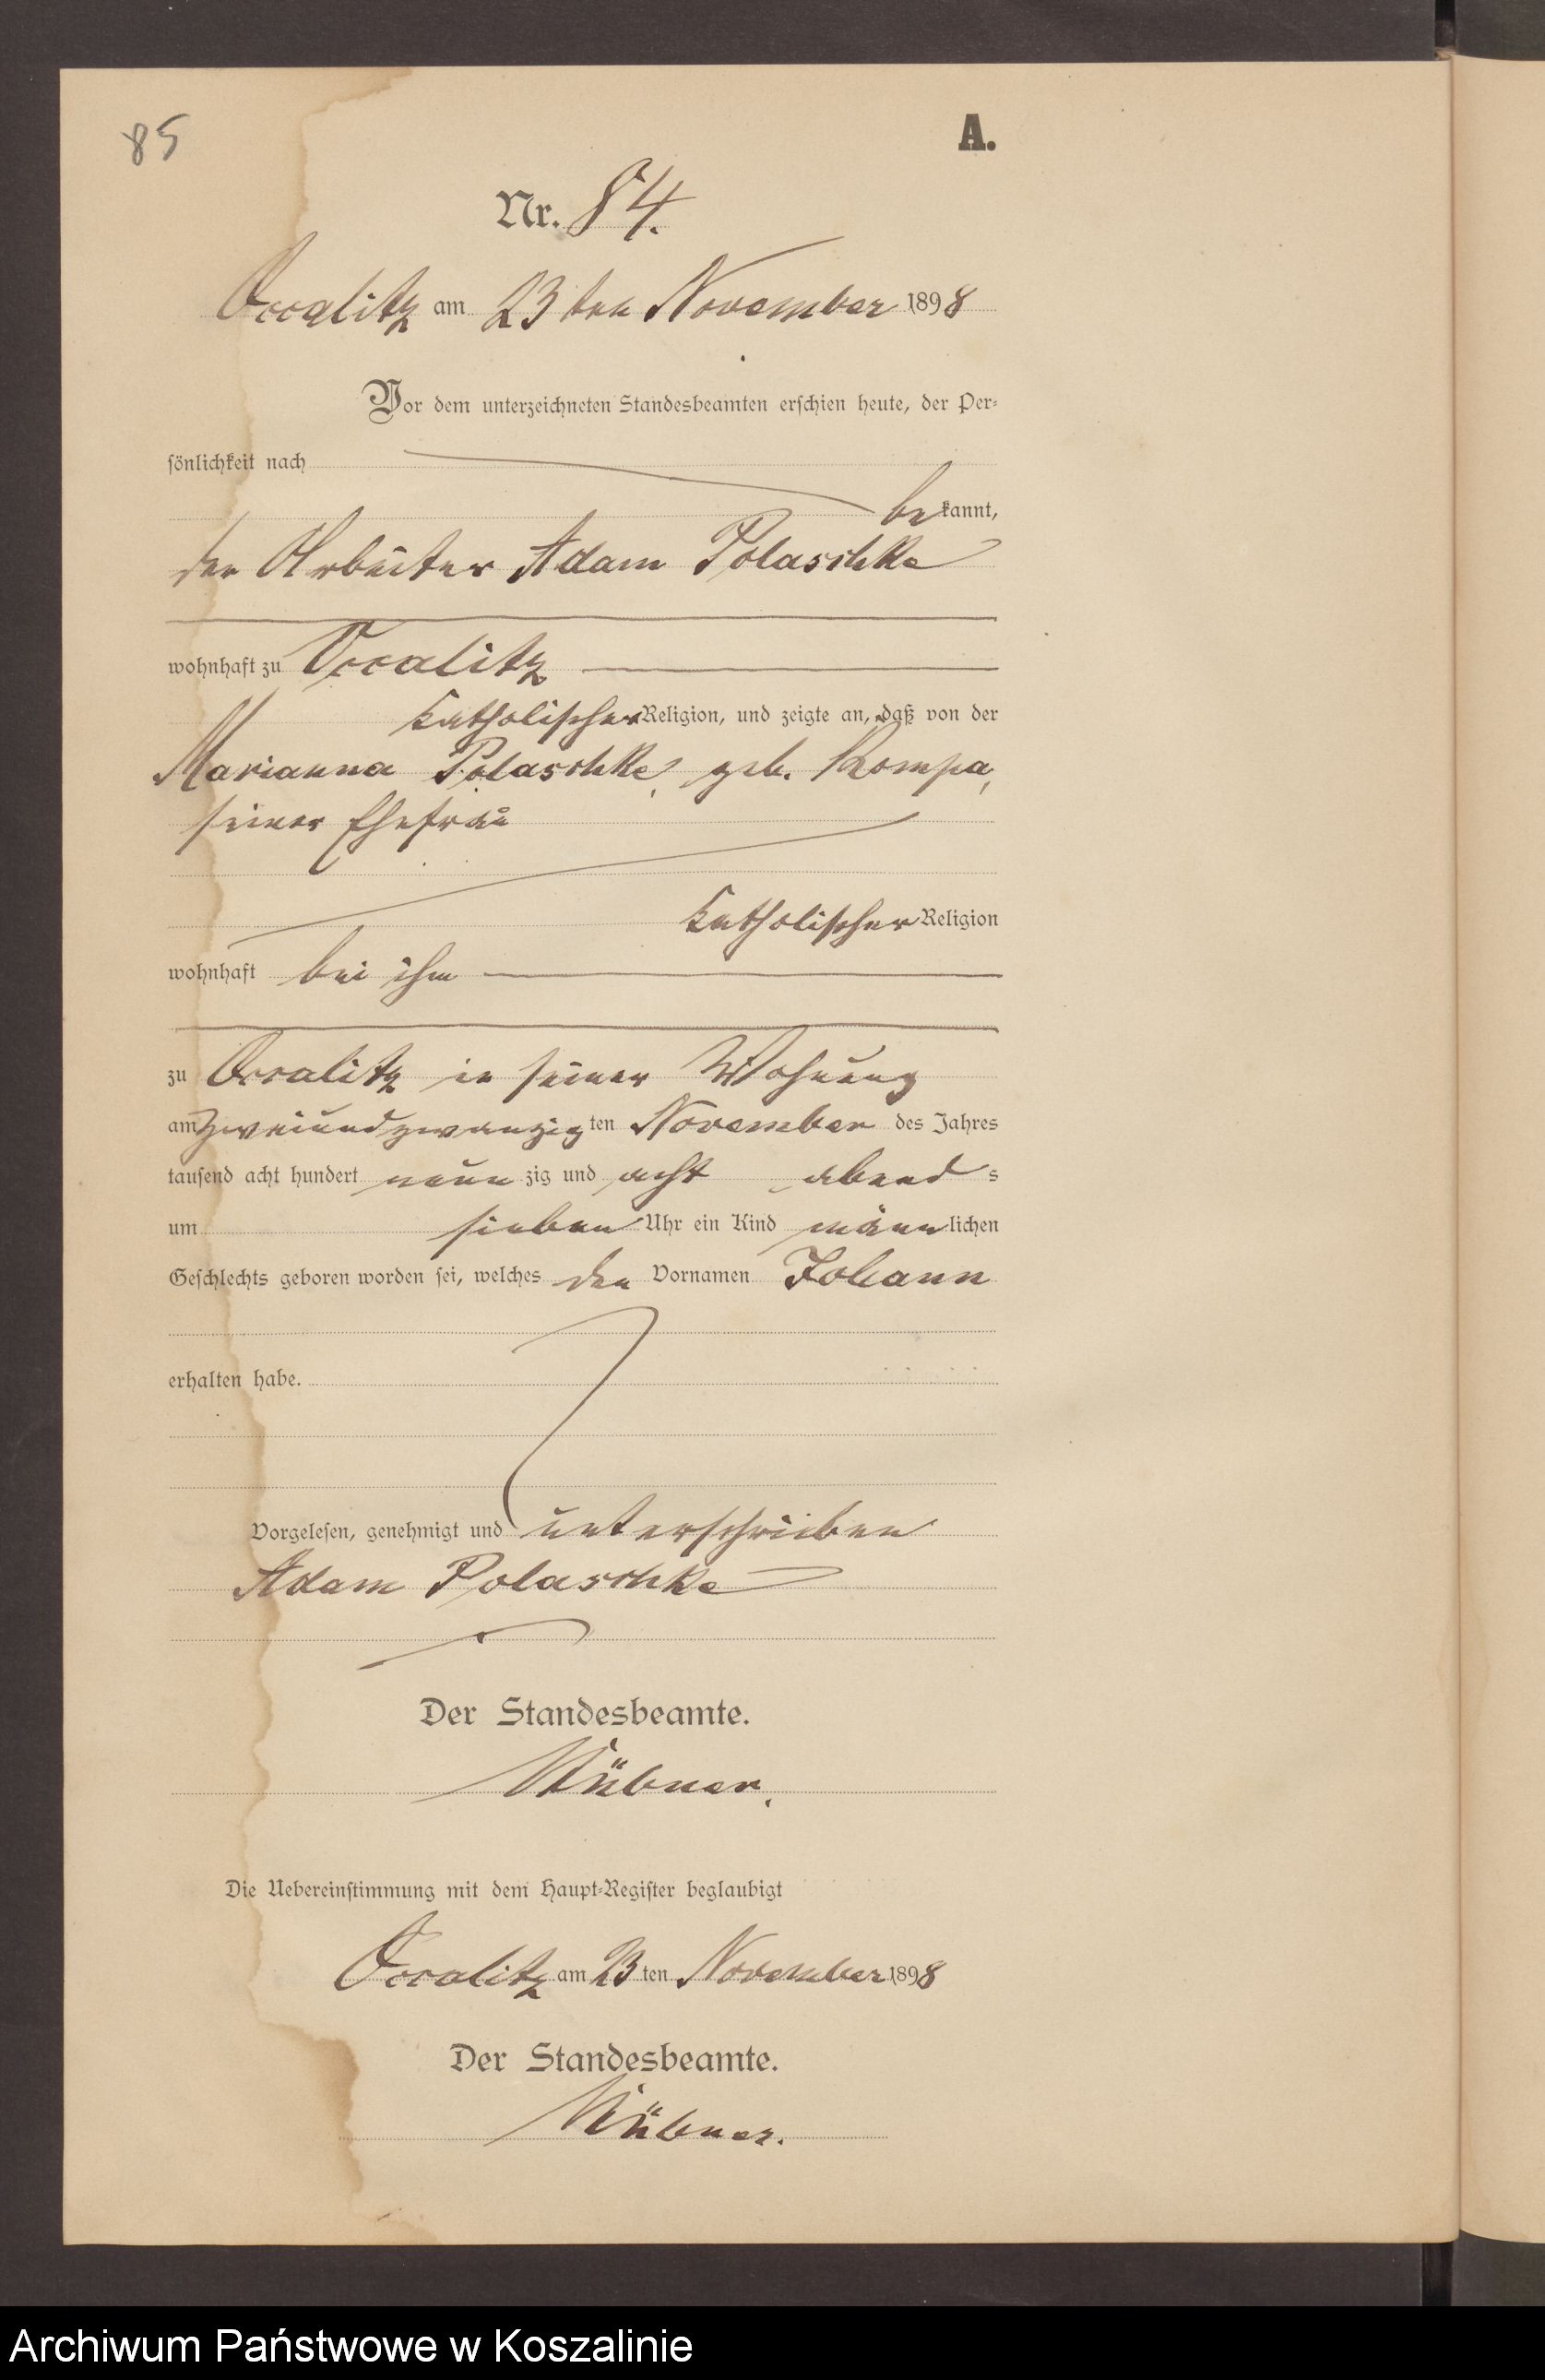 85
A.
Nr. 84.
Occalitz am 23ten November 1898
Vor dem unterzeichneten Standesbeamten erschien heute, der Per-
sönlichkeit nach
bekannt,
der Arbeiter Adam Polaschke
wohnhaft zu Occalitz
katholischer Religion, und zeigte an, daß von der
Marianna Polaschke, geb. Kompa,
seiner Ehefrau
katholischer Religion
wohnhaft bei ihm
zu Occalitz in seiner Wohnung
am zweiundzwanzigten November des Jahres
tausend acht hundert neunzig und acht abends
um sieben Uhr ein Kind männlichen
Geschlechts geboren worden sei, welches den Vornamen Johann
erhalten habe.
Vorgelesen, genehmigt und unterschrieben
Adam Polaschke
Der Standesbeamte.
Die Uebereinstimmung mit dem Haupt-Register beglaubigt
Occalitz am 23ten November 1898
Der Standesbeamte.
Archiwum Państwowe w Koszalinie